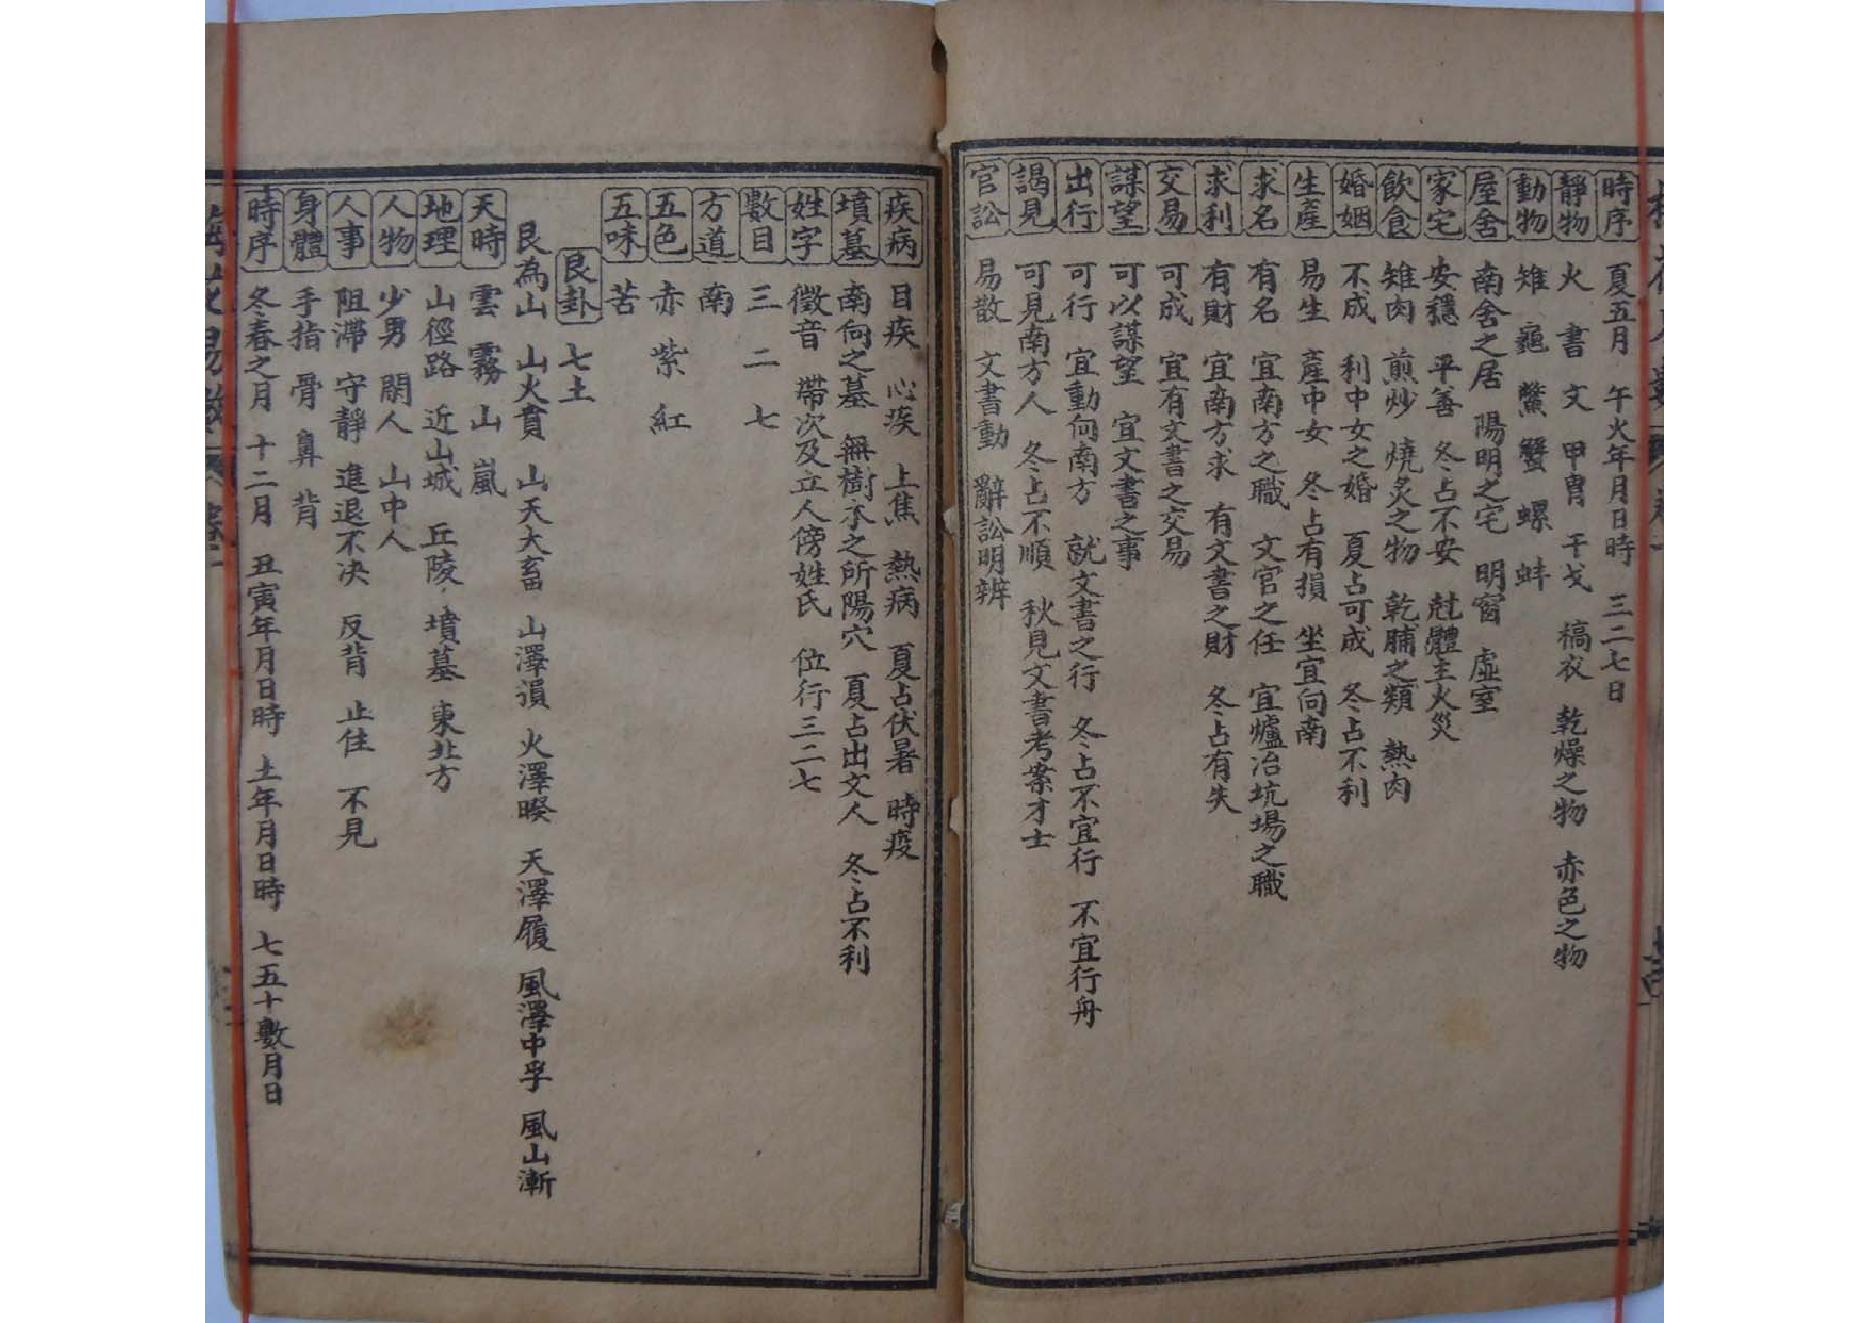 時序 夏五月 午火年月日時 三二七日
靜物 火 書 文 甲冑 干戈 槁衣 乾燥之物 赤色之物
動物 雉 龜 鱉 蟹 螺 蚌
屋舍 南舍之居 陽明之宅 明窗 虛室
家宅 安穩 平善 冬占不安 尅體主火災
飲食 雉肉 煎炒 燒炙之物 乾脯之類 熱肉
婚姻 不成 利中女之婚 夏占可成 冬占不利
生產 易生 產中女 冬占有損 坐宜向南
求名 有名 宜南方之職 文官之任 宜爐冶坑場之職
求利 有財 宜南方求 有文書之財 冬占有失
交易 可成 宜有文書之交易
謀望 可以謀望 宜文書之事
出行 可行 宜動向南方 就文書之行 冬占不宜行 不宜行舟
謁見 可見南方人 冬占不順 秋見文書考案才士
官訟 易散 文書動 辭訟明辨
疾病 目疾 心疾 上焦 熱病 夏占伏暑 時疫
墳墓 南向之墓 無樹木之所陽穴 夏占出文人 冬占不利
姓字 徵音 帶次及立人傍姓氏 位行三二七
數目 三 二 七
方道 南
五色 赤 紫 紅
五味 苦
艮卦 七土
艮為山 山火賁 山天大畜 山澤損 火澤睽 天澤履 風澤中孚 風山漸
天時 雲 霧 山 嵐
地理 山徑路 近山城 丘陵 墳墓 東北方
人物 少男 閑人 山中人
人事 阻滯 守靜 進退不决 反背 止住 不見
身體 手指 骨 鼻 背
時序 冬春之月 十二月 丑寅年月日時 土年月日時 七五十數月日